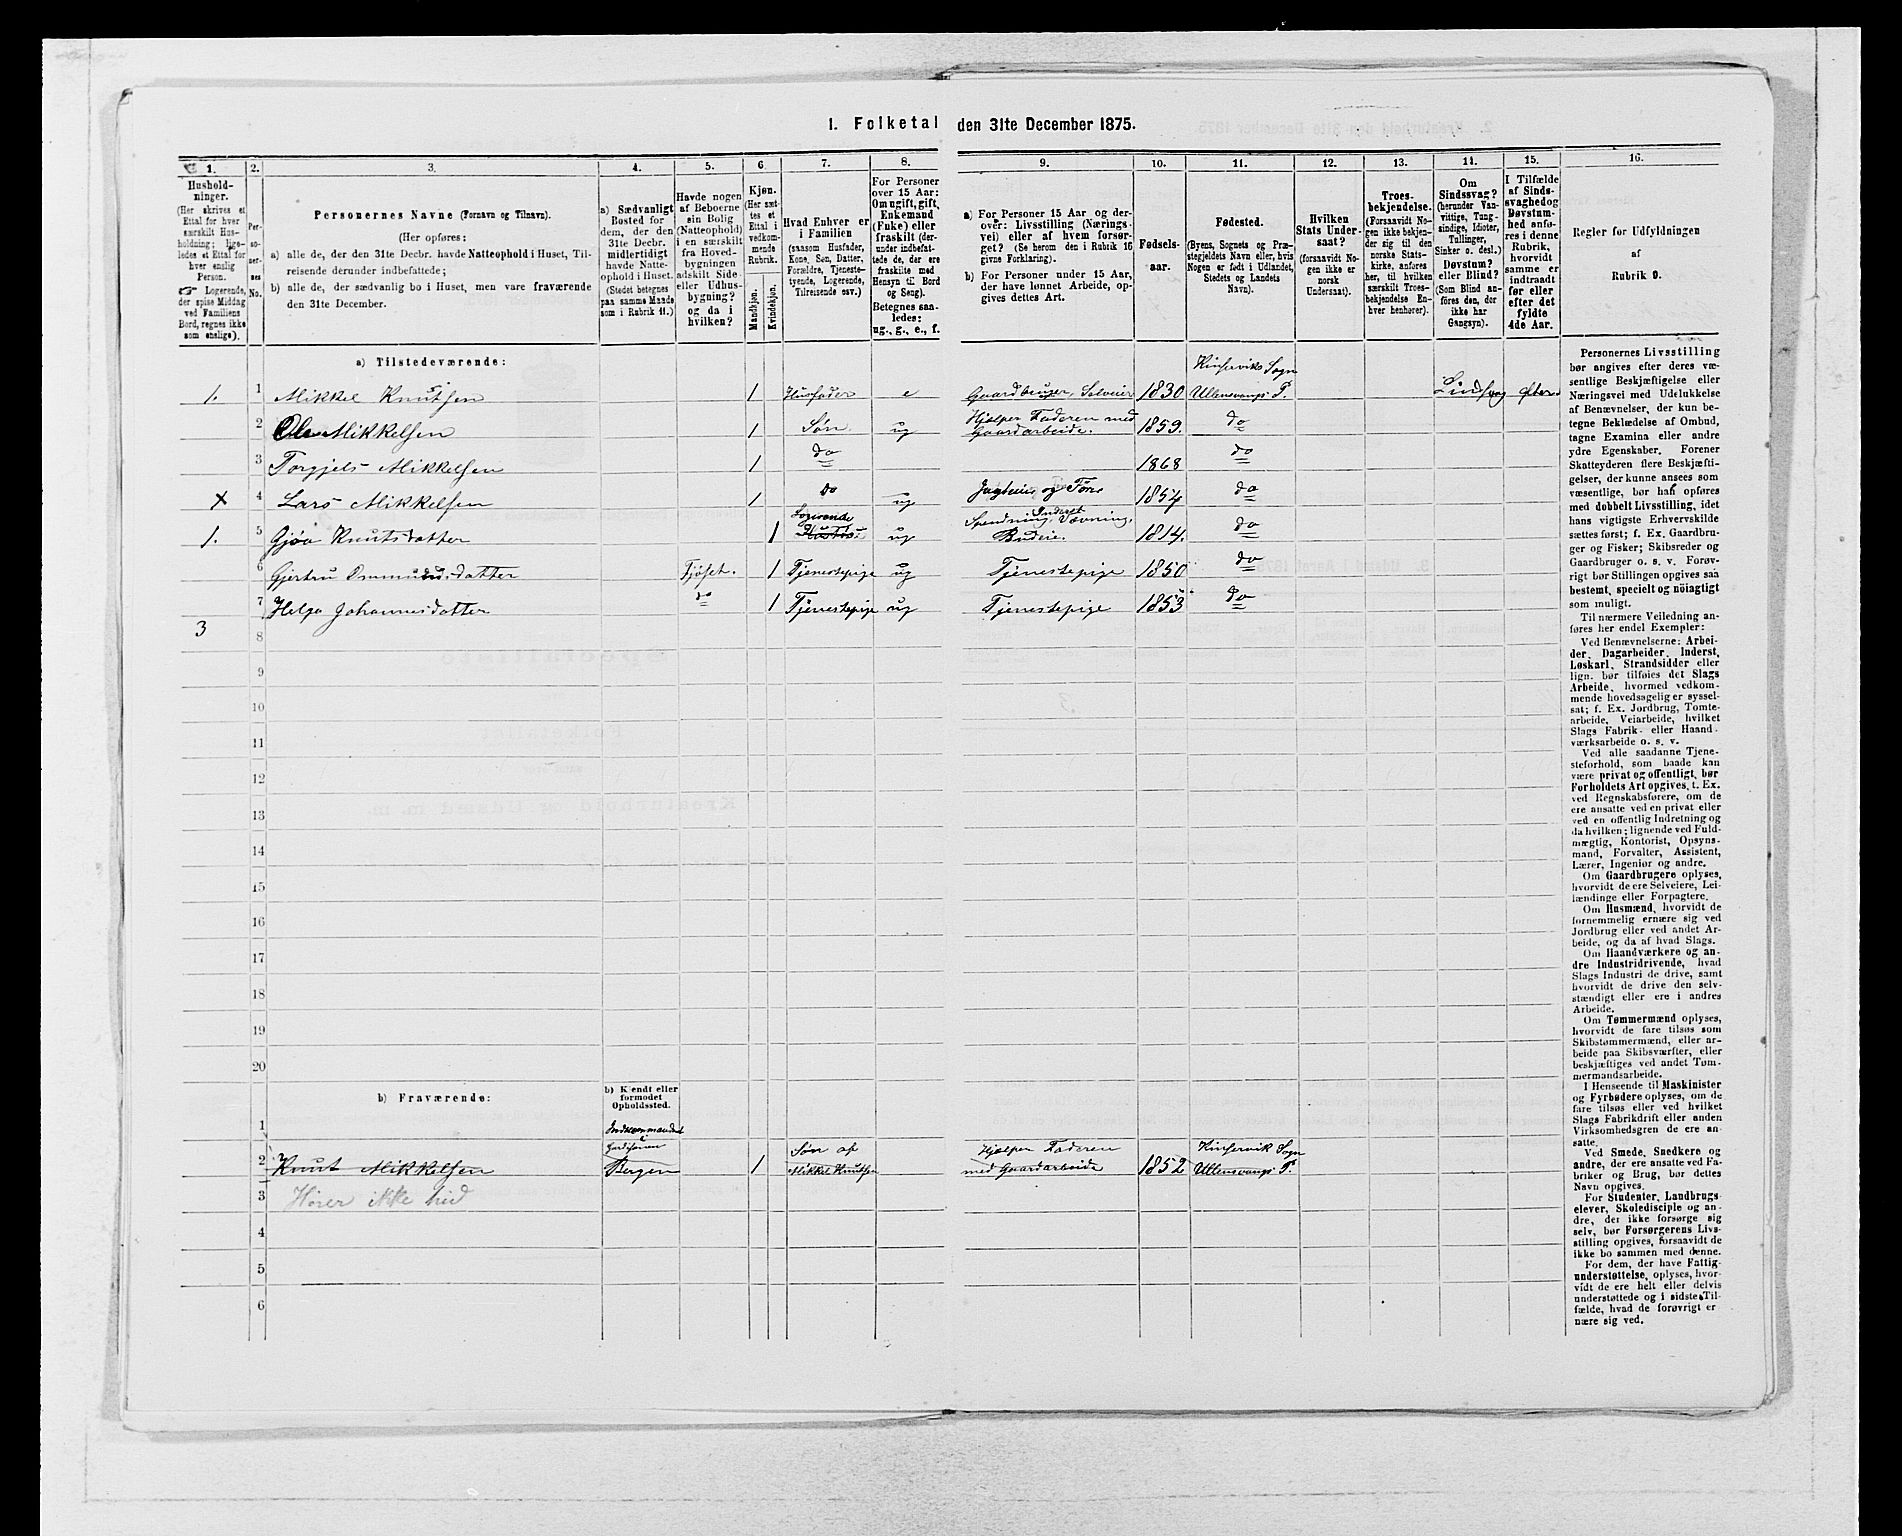 1. Folketal den 31te December 1875.
1. 2. 3. 4. 5. 6. 7. 8. 9. 10. 11. 12. 13. 14. 15. 16.
Hushold-
ninger.
(Her skrives et
Ettal for hver
særskilt Hus-
holdning; lige-
ledes et Ettal for
hver enslig
Person.
Logerende,
der spise Middag
ved Familiens
Bord, regnes ikke
som enslige).
Per-
so-
ner-
nes
No.
Personernes Navne (Fornavn og Tilnavn).
(Her opføres:
a) alle de, der den 31te Decbr. havde Natteophold i Huset, Til-
reisende derunder indbefattede;
b) alle de, der sædvanlig bo i Huset, men vare fraværende
den 31te December.
a) Sædvanligt
Bosted for
dem, der den
31te Decbr.
midlertidigt
havde Natte-
ophold i Huset.
(Stedet betegnes
paa samme Maade
som i Rubrik 11.)
Havde nogen
af Beboerne
sin Bolig
(Natteophold)
i en særskilt
fra Hoved-
bygningen
adskilt Side-
eller Udhus-
bygning?
og da i
hvilken?
Kjøn.
(Her sæt-
tes et
Ettal i
vedkom-
mende
Rubrik.
Mandkjøn.
Kvindekjøn.
Hvad Enhver er
i Familien
(saasom Husfader,
Kone, Søn, Datter,
Forældre, Tjeneste-
tyende, Logerende,
Tilreisende osv.)
For Personer
over 15 Aar:
Om ugift, gift,
Enkemand
(Enke) eller
fraskilt (der-
under indbefat-
tede de, der ere
fraskilte med
Hensyn til Bord
og Seng).
Betegnes saa-
ledes:
ug., g., e., f.
a) For Personer 15 Aar og der-
over: Livsstilling (Nærings-
vei) eller af hvem forsør-
get? (Se herom den i Rubrik 16
givne Forklaring).
b) For Personer under 15 Aar,
der have lønnet Arbeide, op-
gives dettes Art.
Fødsels-
aar.
Fødested.
(Byens, Sognets og Præ-
stegjeldets Navn eller, hvis
Nogen er født i Udlandet,
Stedets og Landets
Navn).
Hvilken
Stats Under-
saat?
(forsaavidt No-
gen ikke er
norsk
Undersaat).
Troes-
bekjendelse.
(Forsaavidt No-
gen ikke bekjen-
der sig til den
norske Stats-
kirke, anføres
her, til hvilken
særskilt Troes-
bekjendelse En-
hver henhører).
Om
Sindssvag?
(herunder Van-
vittige, Tung-
sindige, Idioter,
Tullinger,
Sinker o. desl.)
Døvstum?
eller Blind?
(Som Blind an-
føres den, der
ikke har
Gangsyn).
I Tilfælde
af Sinds-
svaghed og
Døvstum-
hed anfø-
res i denne
Rubrik,
hvorvidt
samme er
indtraadt
før eller
efter det
fyldte
4de Aar.
Regler for Udfyldningen
af
Rubrik 9.
a) Tilstedeværende:
1. 1 Mikkel Knutsen 1 Husfader e Gaardbruger, Selveier 1830 Kinservik Sogn Ullensvangs P. Sindsvag efter
2 Ole Mikkelsen 1 Søn ug Hjælper Faderen med Gaardarbeide. 1859. do
3 Torgjels Mikkelsen 1 do 1868 do
x 4 Lars Mikkelsen 1 do ug 1854 do
1. 5 Gjøa Knutsdatter 1 Logerende ug Spindning, Vævning, Inderst Budeie. 1814. do
6 Gjertru Ommundsdatter Fjøset. 1 Tjenestepige ug Tjenestepige 1850 do
7 Helga Johannesdatter do 1 Tjenestepige ug Tjenestepige 1853 do
3 8
9
10
11
12
13
14
15
16
17
18
19
20
b) Fraværende:
b) Kjendt eller
formodet
Opholdssted.
1
2 Knut Mikkelsen Bergen 1 Søn af Mikkel Knutsen Hjælper Faderen med Gaardarbeide 1852 Kinservik Sogn Ullensvangs P.
3 Hører ikke hid
4
5
6
Personernes Livsstilling
bør angives efter deres væ-
sentlige Beskjæftigelse eller
Næringsvei med Udelukkelse
af Benævnelser, der kun be-
tegne Beklædelse af Ombud,
tagne Examina eller andre
ydre Egenskaber. Forener
Skatteyderen flere Beskjæfti-
gelser, der kunne ansees som
væsentlige, bør han opføres
med dobbelt Livsstilling, idet
hans vigtigste Erhvervskilde
sættes først; f. Ex. Gaardbru-
ger og Fisker; Skibsreder og
Gaardbruger o. s. v. Forøv-
rigt bør Stillingen opgives saa
bestemt, specielt og nöiagtigt
som muligt.
Til nærmere Veiledning an-
føres her endel Exempler:
Ved Benævnelserne: Arbei-
der, Dagarbeider, Inderst,
Løskarl, Strandsidder eller
lign. bør tilføies det Slags
Arbeide, hvormed vedkom-
mende hovedsagelig er syssel-
sat; f. Ex. Jordbrug, Tomte-
arbeide, Veiarbeide, hvilket
Slags Fabrik- eller Haand-
værksarbeide o. s. v.
Ved alle saadanne Tjene-
steforhold, som baade kan
være privat og offentligt, bør
Forholdets Art opgives, t. Ex.
ved Regnskabsførere, om de
ere ansatte ved en privat eller
ved en offentlig Indretning og
da hvilken; lignende ved Fuld-
mægtig, Kontorist, Opsyns-
mand, Forvalter, Assistent,
Lærer, Ingeniør og andre.
Om Gaardbrugere oplyses,
hvorvidt de ere Selveiere, Lei-
lændinge eller Forpagtere.
Om Husmænd, hvorvidt de
fornemmelig ernære sig ved
Jordbrug eller ved andet Ar-
beide, og da af hvad Slags.
Om Haandværkere og an-
dre Industridrivende, hvad
Slags Industri de drive, samt
hvorvidt de drive den selv-
stændigt eller ere i andres
Arbeide.
Om Tømmermænd oplyses,
hvorvidt de fare tilsøs som
Skibstømmermænd, eller ar-
beide paa Skibsværfter, eller
beskjæftiges ved andet Tøm-
mermandsarbeide.
I Henseende til Maskinister
og Fyrbødere oplyses, om de
fare tilsøs eller ved hvilket
Slags Fabrikdrift eller anden
Virksomhedsgren de ere an-
satte.
Ved Smede, Snedkere og
andre, der ere ansatte ved Fa-
briker og Brug, bør dettes
Navn opgives.
For Studenter, Landbrugs-
elever, Skoledisciple og an-
dre, der ikke forsørge sig
selv, bør Forsørgerens Livs-
stilling opgives, forsaavidt de
ikke bo sammen med denne.
For dem, der have Fattig-
understøttelse, oplyses, hvor-
vidt de ere helt eller delvis
understøttede og i sidste Til-
fælde, hvad de forøvrigt er
nære sig ved.